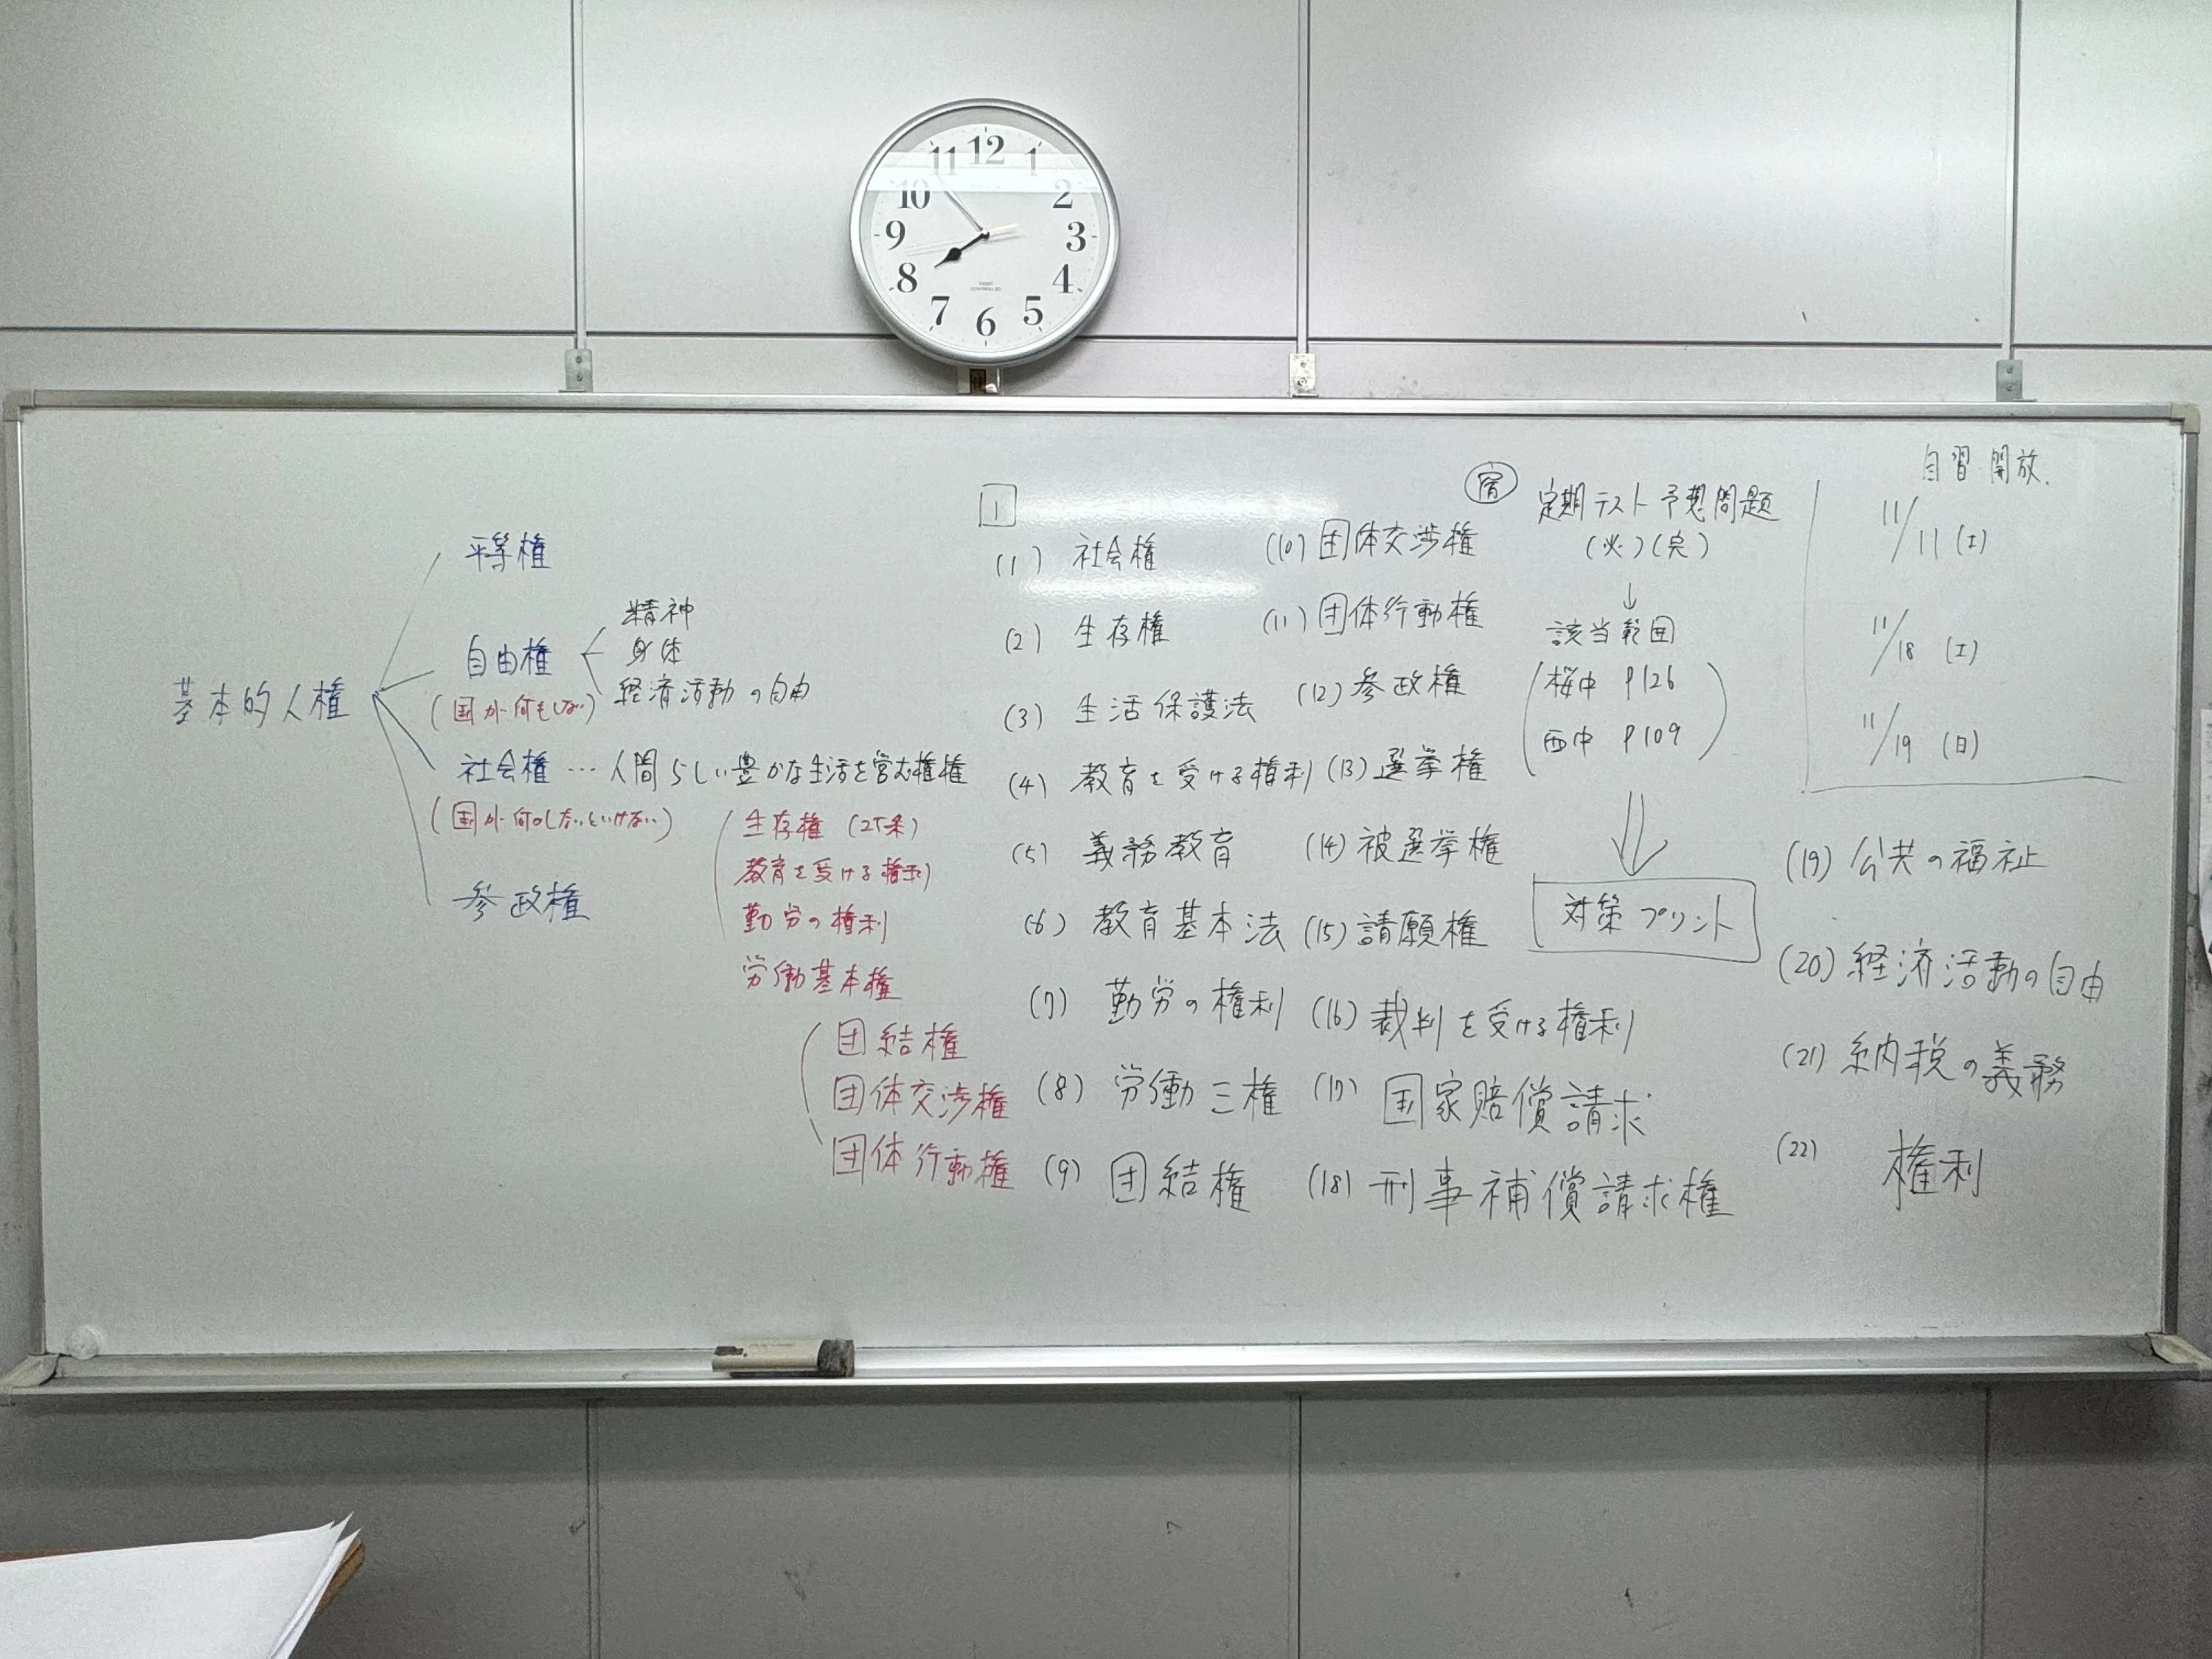 12
1
2
3
4
5
6
7
8
9
10
11
基本的人権
平等権
自由権
精神
身体
経済活動の自由
(国が何もしない)
社会権 … 人間らしい豊かな生活を営む権権
(国が何かしないといけない)
生存権 (25条)
教育を受ける権利
勤労の権利
労働基本権
団結権
団体交渉権
団体行動権
参政権
1
(1) 社会権
(2) 生存権
(3) 生活保護法
(4) 教育を受ける権利
(5) 義務教育
(6) 教育基本法
(7) 勤労の権利
(8) 労働三権
(9) 団結権
(10) 団体交渉権
(11) 団体行動権
(12) 参政権
(13) 選挙権
(14) 被選挙権
(15) 請願権
(16) 裁判を受ける権利
(17) 国家賠償請求
(18) 刑事補償請求権
宿 定期テスト予想問題
(必)(完)
↓
該当範囲
桜中 P126
西中 P109
対策プリント
自習開放.
11/11 (土)
11/18 (土)
11/19 (日)
(19) 公共の福祉
(20) 経済活動の自由
(21) 納税の義務
(22) 権利